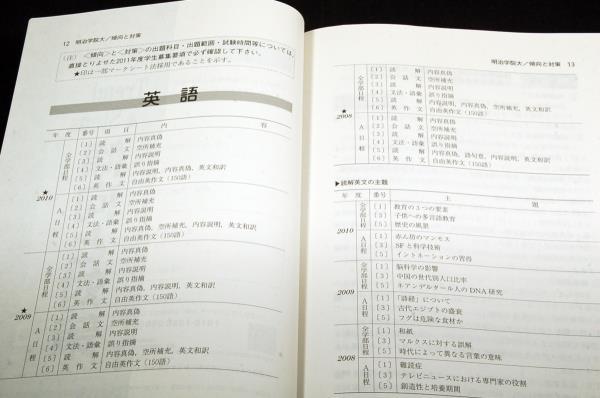 12 明治学院大／傾向と対策
(注) 〈傾向〉と〈対策〉の出題科目・出題範囲・試験時間等については,
直接とりよせた2011年度学生募集要項で必ず確認して下さい。
★印は一部マークシート法採用であることを示す。
英語
年 度 番号 項 目 内 容
★
2010
全学部日程
〔1〕 読 解 内容真偽
〔2〕 会 話 文 空所補充
〔3〕 読 解 内容説明
〔4〕 文法・語彙 誤り指摘
〔5〕 読 解 内容説明, 内容真偽, 英文和訳
〔6〕 英 作 文 自由英作文(150語)
A日程
〔1〕 読 解 内容真偽
〔2〕 会 話 文 空所補充
〔3〕 読 解 内容説明
〔4〕 文法・語彙 誤り指摘
〔5〕 読 解 内容真偽, 空所補充, 内容説明, 英文和訳
〔6〕 英 作 文 自由英作文(150語)
★
2009
全学部日程
〔1〕 読 解 内容真偽
〔2〕 会 話 文 空所補充
〔3〕 読 解 内容説明
〔4〕 文法・語彙 誤り指摘
〔5〕 読 解 内容真偽, 内容説明, 英文和訳
〔6〕 英 作 文 自由英作文(150語)
A日程
〔1〕 読 解 内容真偽
〔2〕 会 話 文 空所補充
〔3〕 読 解 内容説明
〔4〕 文法・語彙 誤り指摘
〔5〕 読 解 内容真偽, 空所補充, 英文和訳
〔6〕 英 作 文 自由英作文(150語)
明治学院大／傾向と対策 13
★
2008
全学部日程
〔1〕 読 解 内容真偽
〔2〕 会 話 文 空所補充
〔3〕 読 解 内容説明
〔4〕 文法・語彙 誤り指摘
〔5〕 読 解 内容説明, 内容真偽, 空所補充, 英文和訳
〔6〕 英 作 文 自由英作文(150語)
A日程
〔1〕 読 解 内容真偽
〔2〕 会 話 文 空所補充
〔3〕 読 解 内容説明
〔4〕 文法・語彙 誤り指摘
〔5〕 読 解 内容真偽, 語句意, 内容説明, 英文和訳
〔6〕 英 作 文 自由英作文(150語)
▶読解英文の主題
年 度 番号 主 題
2010
全学部日程
〔1〕 教育の3つの要素
〔3〕 子供への多言語教育
〔5〕 歴史の風景
A日程
〔1〕 赤ん坊のマンモス
〔3〕 SFと科学技術
〔5〕 イントネーションの習得
2009
全学部日程
〔1〕 脳科学の影響
〔3〕 中国の世代別人口比率
〔5〕 ネアンデルタール人のDNA研究
A日程
〔1〕 『詩経』について
〔3〕 古代エジプトの盛衰
〔5〕 フグは危険な食材か
2008
全学部日程
〔1〕 和紙
〔3〕 マルクスに対する誤解
〔5〕 時代によって異なる言葉の意味
A日程
〔1〕 難読症
〔3〕 テレビニュースにおける専門家の役割
〔5〕 創造性と培養期間